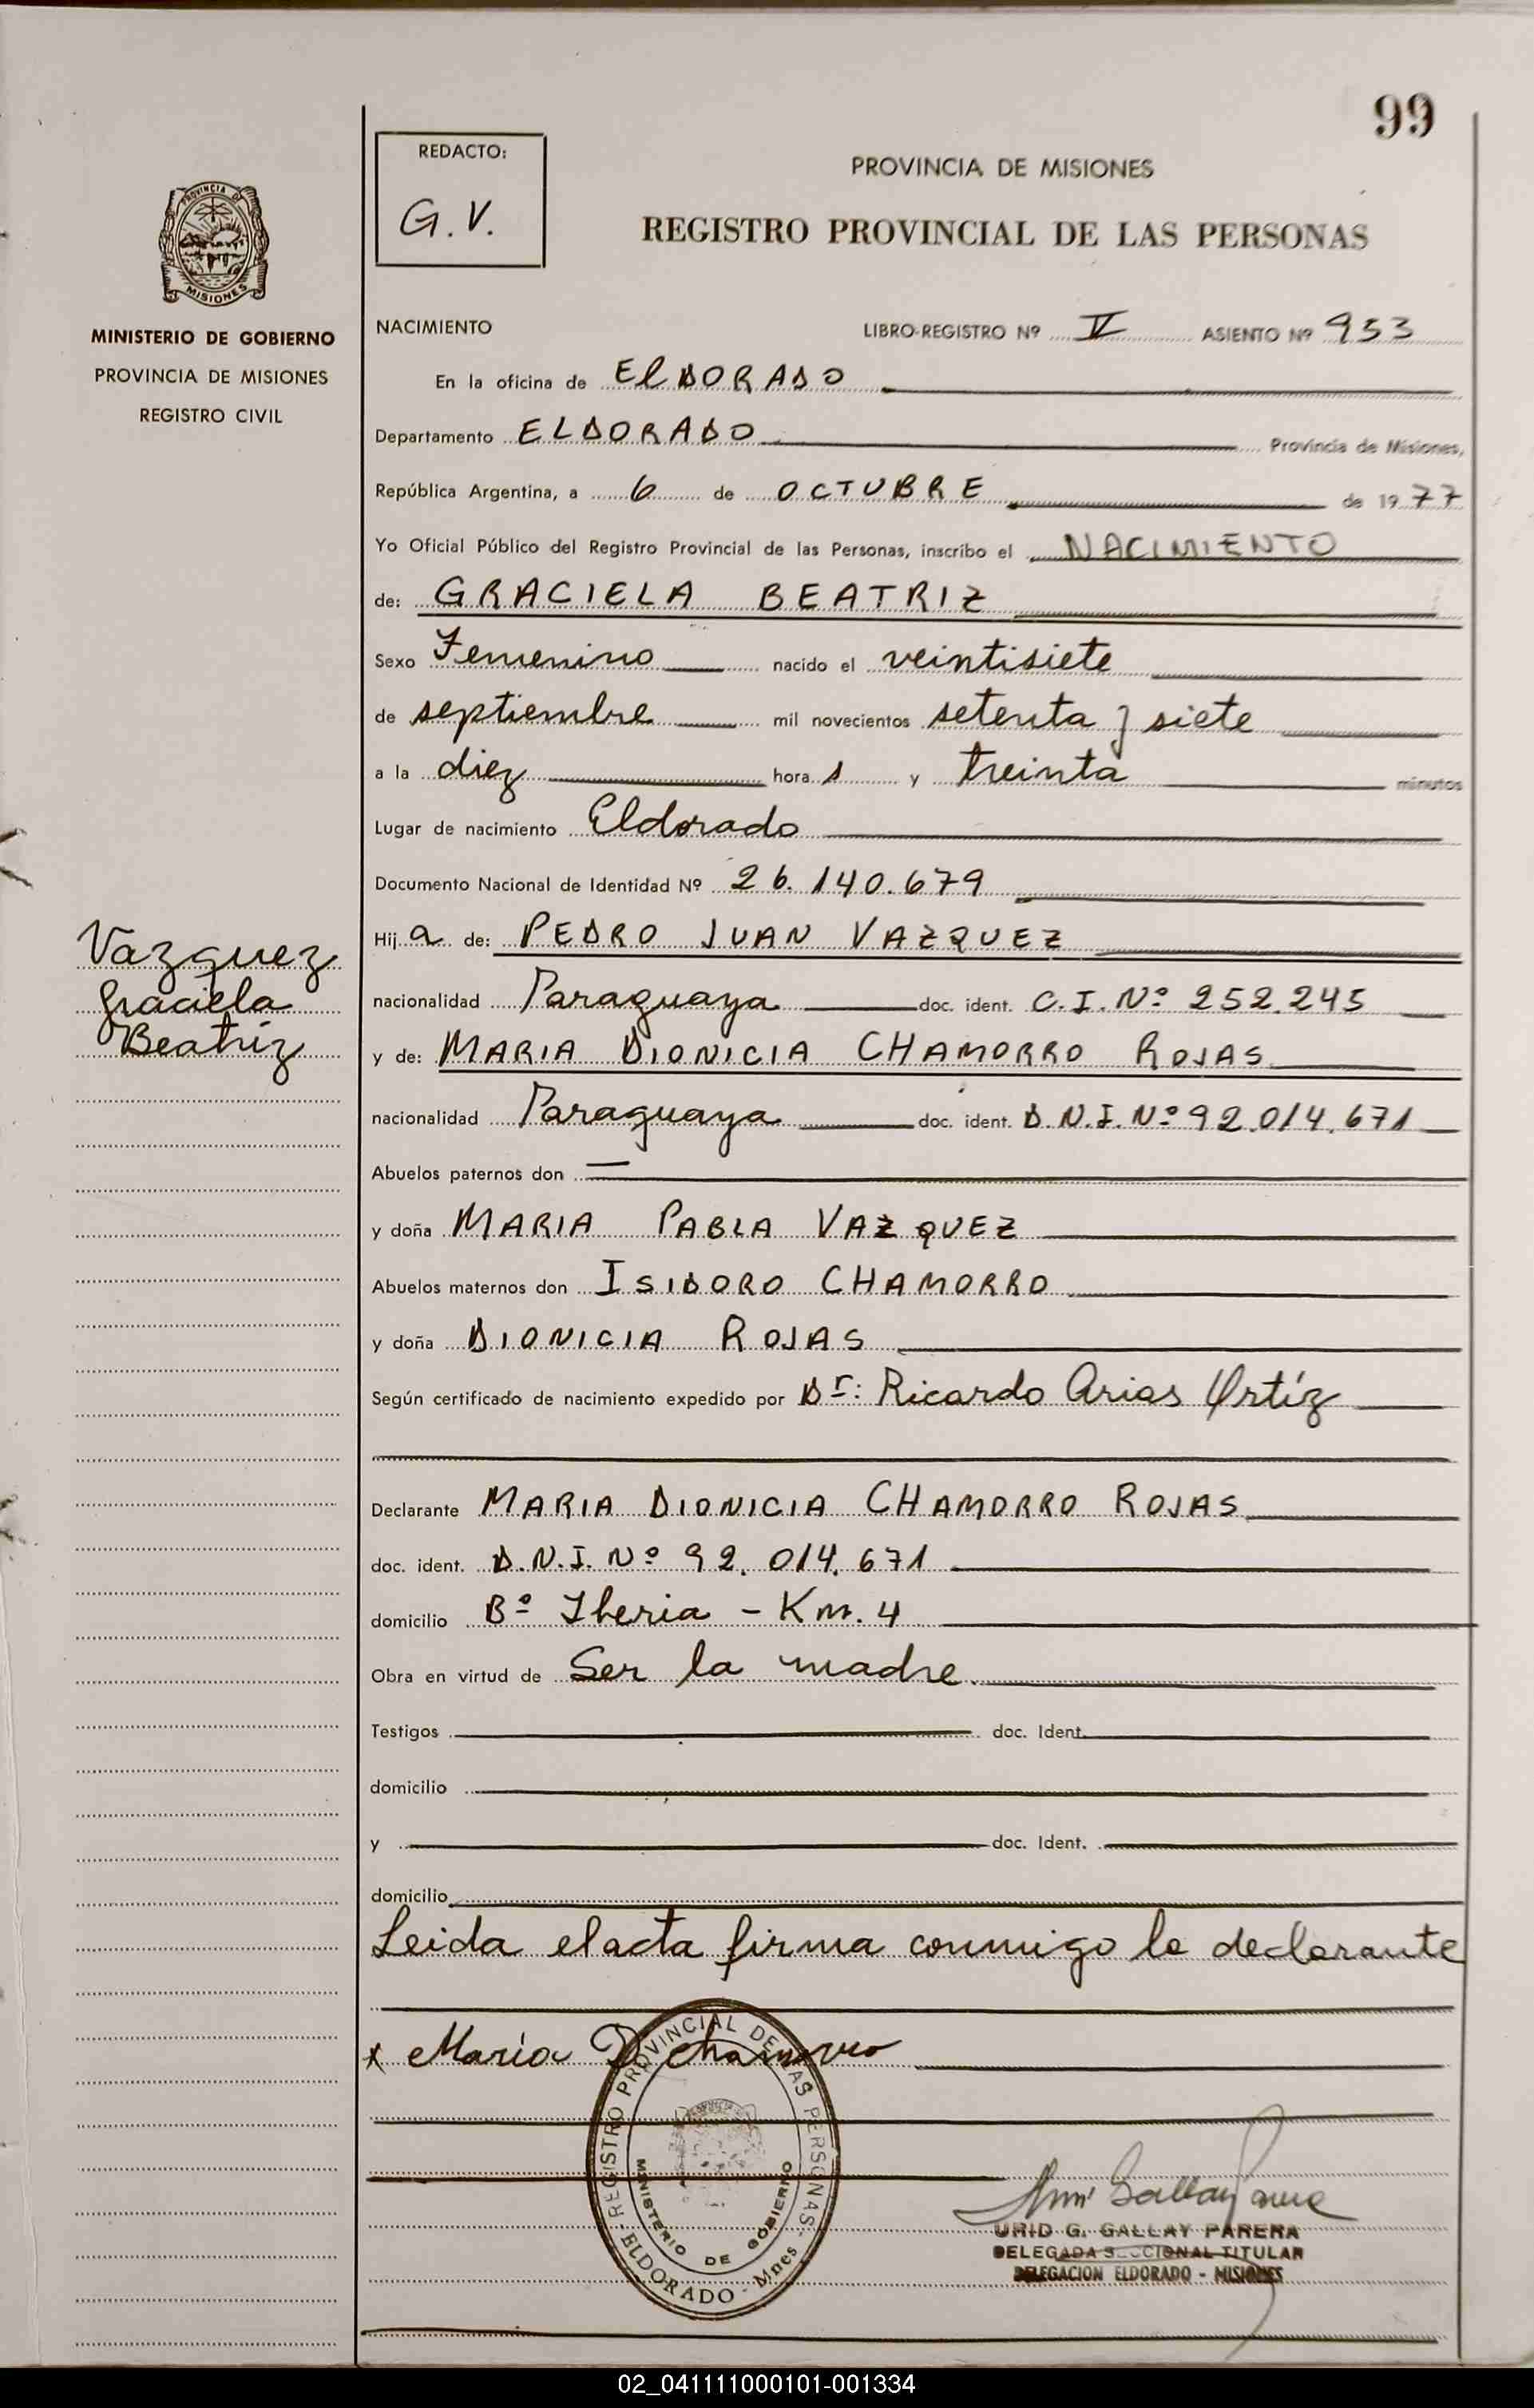 99
REDACTO:
G.V.
PROVINCIA DE MISIONES
REGISTRO PROVINCIAL DE LAS PERSONAS
PROVINCIA DE
MISIONES
MINISTERIO DE GOBIERNO
PROVINCIA DE MISIONES
REGISTRO CIVIL
NACIMIENTO LIBRO-REGISTRO Nº V ASIENTO Nº 953
En la oficina de ElDORADO
Departamento ELDORADO Provincia de Misiones,
República Argentina, a 6 de OCTUBRE de 1977
Yo Oficial Público del Registro Provincial de las Personas, inscribo el NACIMIENTO
de: GRACIELA BEATRIZ
Sexo Femenino nacido el veintisiete
de septiembre mil novecientos setenta y siete
a la diez hora s y treinta minutos
Lugar de nacimiento Eldorado
Documento Nacional de Identidad Nº 26.140.679
Hij a de: PEDRO JUAN VAZQUEZ
nacionalidad Paraguaya doc. ident. C.I. Nº 252.245
y de: MARIA DIONICIA CHAMORRO ROJAS
nacionalidad Paraguaya doc. ident. D.N.I. Nº 92.014.671
Vazquez
Graciela
Beatriz
Abuelos paternos don —
y doña MARIA PABLA VAZQUEZ
Abuelos maternos don ISIDORO CHAMORRO
y doña DIONICIA ROJAS
Según certificado de nacimiento expedido por Dr: Ricardo Arias Ortíz
Declarante MARIA DIONICIA CHAMORRO ROJAS
doc. ident. D.N.I. Nº 92.014.671
domicilio Bº Iberia - Km. 4
Obra en virtud de Ser la madre.
Testigos doc. Ident.
domicilio
y doc. Ident.
domicilio
Leida el acta firma conmigo la declarante
x María D. chamorro
REGISTRO PROVINCIAL DE LAS PERSONAS
MINISTERIO DE GOBIERNO
ELDORADO - Mnes
URID G. GALLAY PARERA
DELEGADA SECCIONAL TITULAR
DELEGACION ELDORADO - MISIONES
02_041111000101-001334